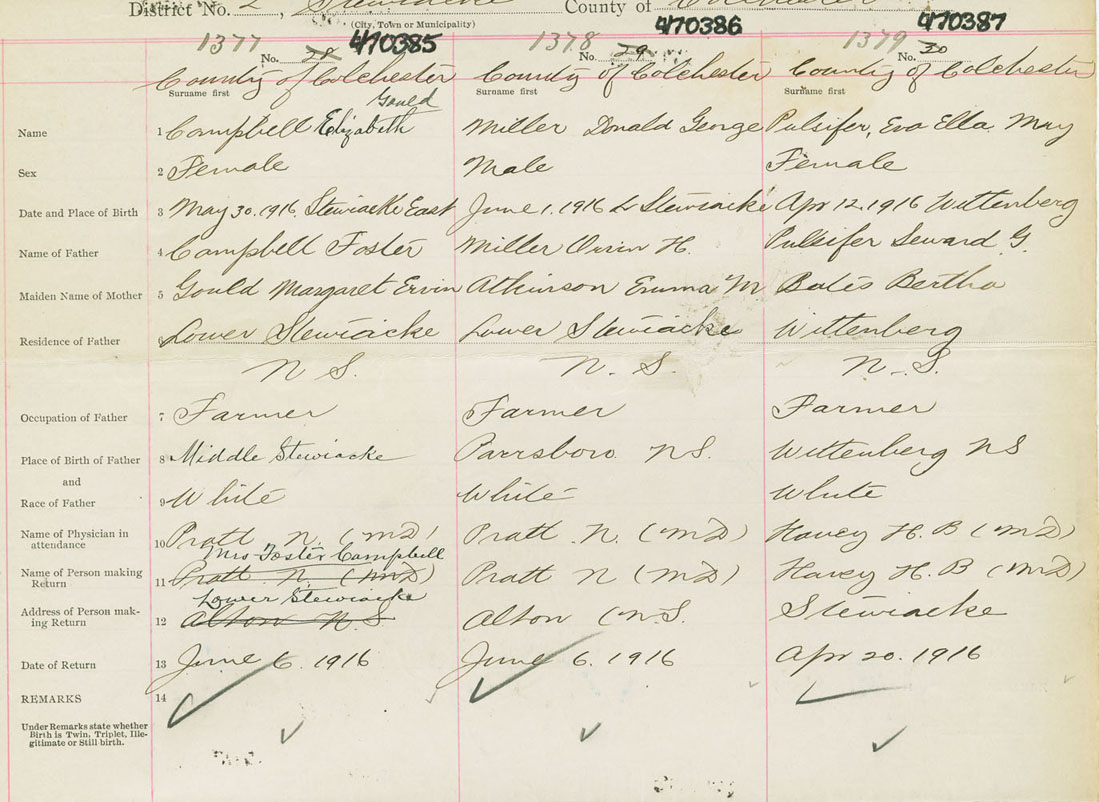 District No. 2, Stewiacke County of Colchester
(City, Town or Municipality)
1377 No. 28 470385 1378 No. 29 470386 1379 No. 30 470387
County of Colchester County of Colchester County of Colchester
Surname first Surname first Surname first
Gould
Name 1 Campbell Elizabeth Miller Donald George Pulsifer, Eva Ella May
Sex 2 Female Male Female
Date and Place of Birth 3 May 30. 1916 Stewiacke East June 1. 1916 L Stewiacke Apr 12. 1916 Wittenberg
Name of Father 4 Campbell Foster Miller Orrin H. Pulsifer Seward G.
Maiden Name of Mother 5 Gould Margaret Ervin Atkinson Emma M Bates Bertha
Residence of Father Lower Stewiacke Lower Stewiacke Wittenberg
N S. N. S. N. S.
Occupation of Father 7 Farmer Farmer Farmer
Place of Birth of Father 8 Middle Stewiacke Parrsboro NS. Wittenberg NS
and
Race of Father 9 White White White
Name of Physician in attendance 10 Pratt N. (MD) Pratt N. (MD) Havey H. B (MD)
Mrs Foster Campbell
Name of Person making Return 11 Pratt N. (MD) Pratt N (MD) Havey H. B (MD)
Lower Stewiacke
Address of Person making Return 12 Alton N.S Alton (N.S. Stewiacke
Date of Return 13 June 6. 1916 June 6. 1916 Apr 20. 1916
REMARKS 14
Under Remarks state whether
Birth is Twin, Triplet, Ille-
gitimate or Still birth.